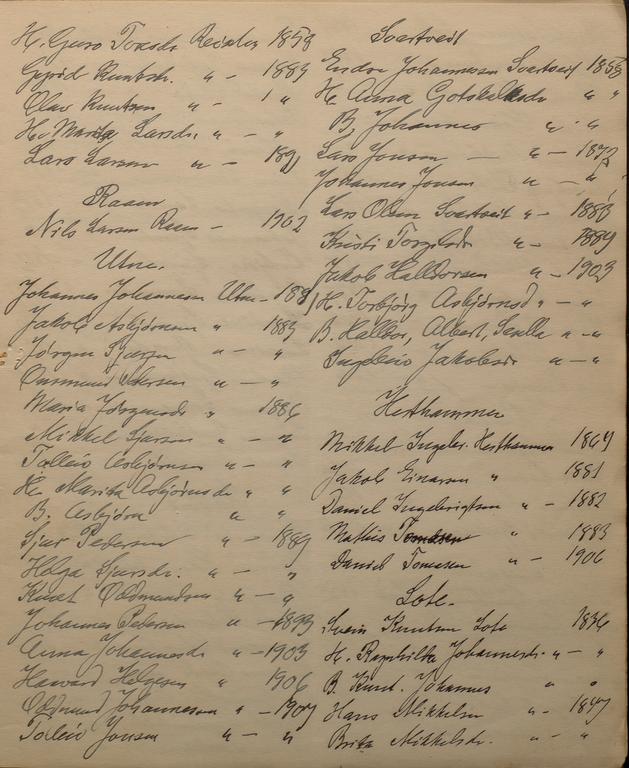 H. Guro Torsdr. 1853
Gyrid Knutsdr. " - 1883
Olav Knutsen " - 1 "
H. Marita Larsdr. " - "
Lars Larsen " - 1891
Raaen
Nils Larsen Raaen - 1902
Utne.
Johannes Johannesen Utne - 1881
Jakob Asbjörnsen " 1883
Jörgen " - "
Ommund " - "
Maria Jörgensdr. " 1886
Mikkel Sjursen " - "
Tolleiv Asbjörnsen " - "
H. Marita Asbjörnsdr " "
B. Asbjörn " "
Sjur Pedersen " - 1889
Helga Sjursdr. " - "
Knut Oddmundsen " - "
Johannes Pedersen " - 1893
Anna Johannesdr " - 1903
Haavard Helgesen " 1906
Oddmund Johannesen " - 1907
Torleiv Jonsen " - "
Svartveit
Endre Johannesen Svartveit 1853
H. Anna Gotskalksdr " "
B. Johannes " "
Lars Jonsen - " - 1872
Johannes Jonsen " - "
Lars Olsen Svartveit " - 1883
Kristi Torgilsdr " - 1889
Jakob Halldorsen " - 1903
H. Torbjörg Asbjörnsd " - "
B. Halldor, Albert, " - "
Ingeleiv Jakobsdr " - "
Hesthammer
Mikkel Ingebr. Hesthammer 1864
Jakob Einarsen " 1881
Daniel Ingebrigtsen " - 1882
Mathis Tomasen " 1883
Daniel Tomasen " - 1906
Lote.
Svein Knutsen Lote 1836
H. Ragnhilda Johannesdr. " - "
B. Knut. Johannes " "
Hans Mikkelsen " - 1847
Brita Mikkelsdr. " - "